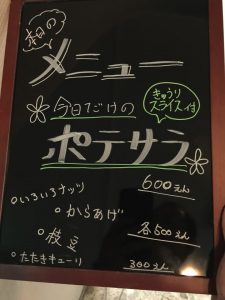 本日の
メニュー
今日だけの
きゅうり
スライス付
ポテサラ
600えん
いろいろナッツ
からあげ
各500えん
枝豆
たたきキューリ
300えん